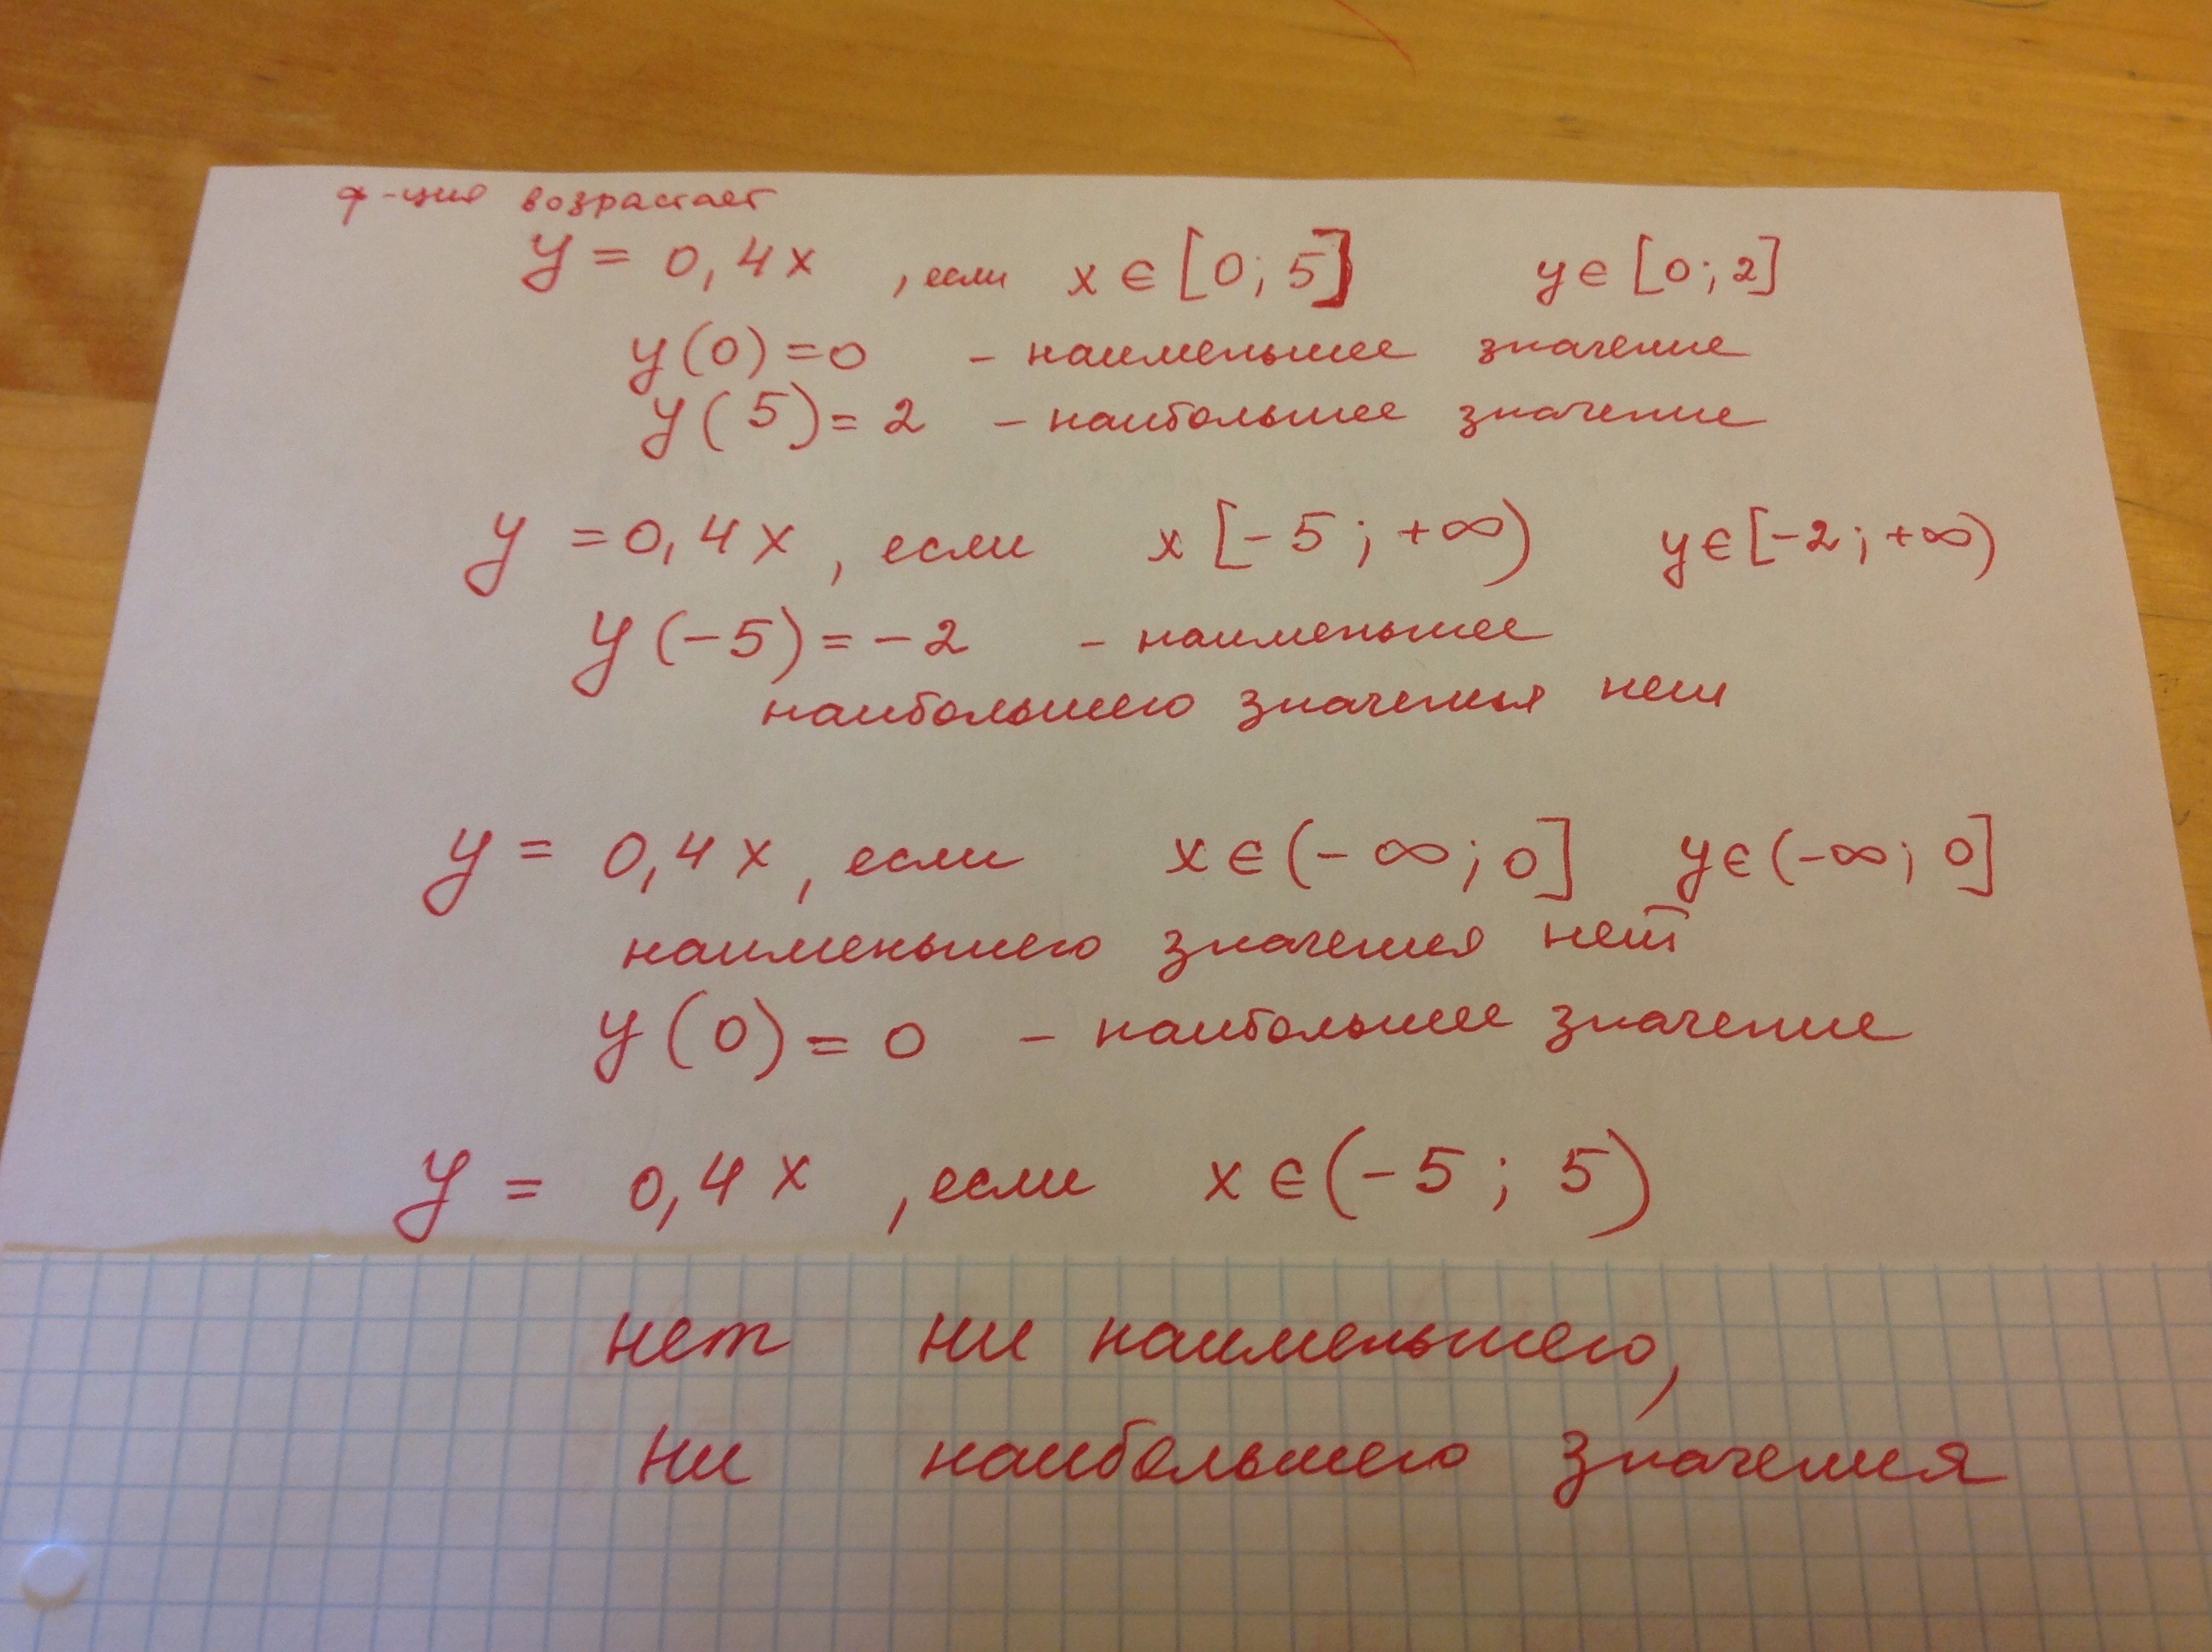 ф-ция возрастает
y = 0,4x , если x ∈ [0; 5] y ∈ [0; 2]
y(0) = 0 - наименьшее значение
y(5) = 2 - наибольшее значение
y = 0,4x, если x [-5; +∞) y ∈ [-2; +∞)
y(-5) = -2 - наименьшее
наибольшего значения нет
y = 0,4x, если x ∈ (-∞; 0] y ∈ (-∞; 0]
наименьшего значения нет
y(0) = 0 - наибольшее значение
y = 0,4x , если x ∈ (-5; 5)
нет ни наименьшего,
ни наибольшего значения